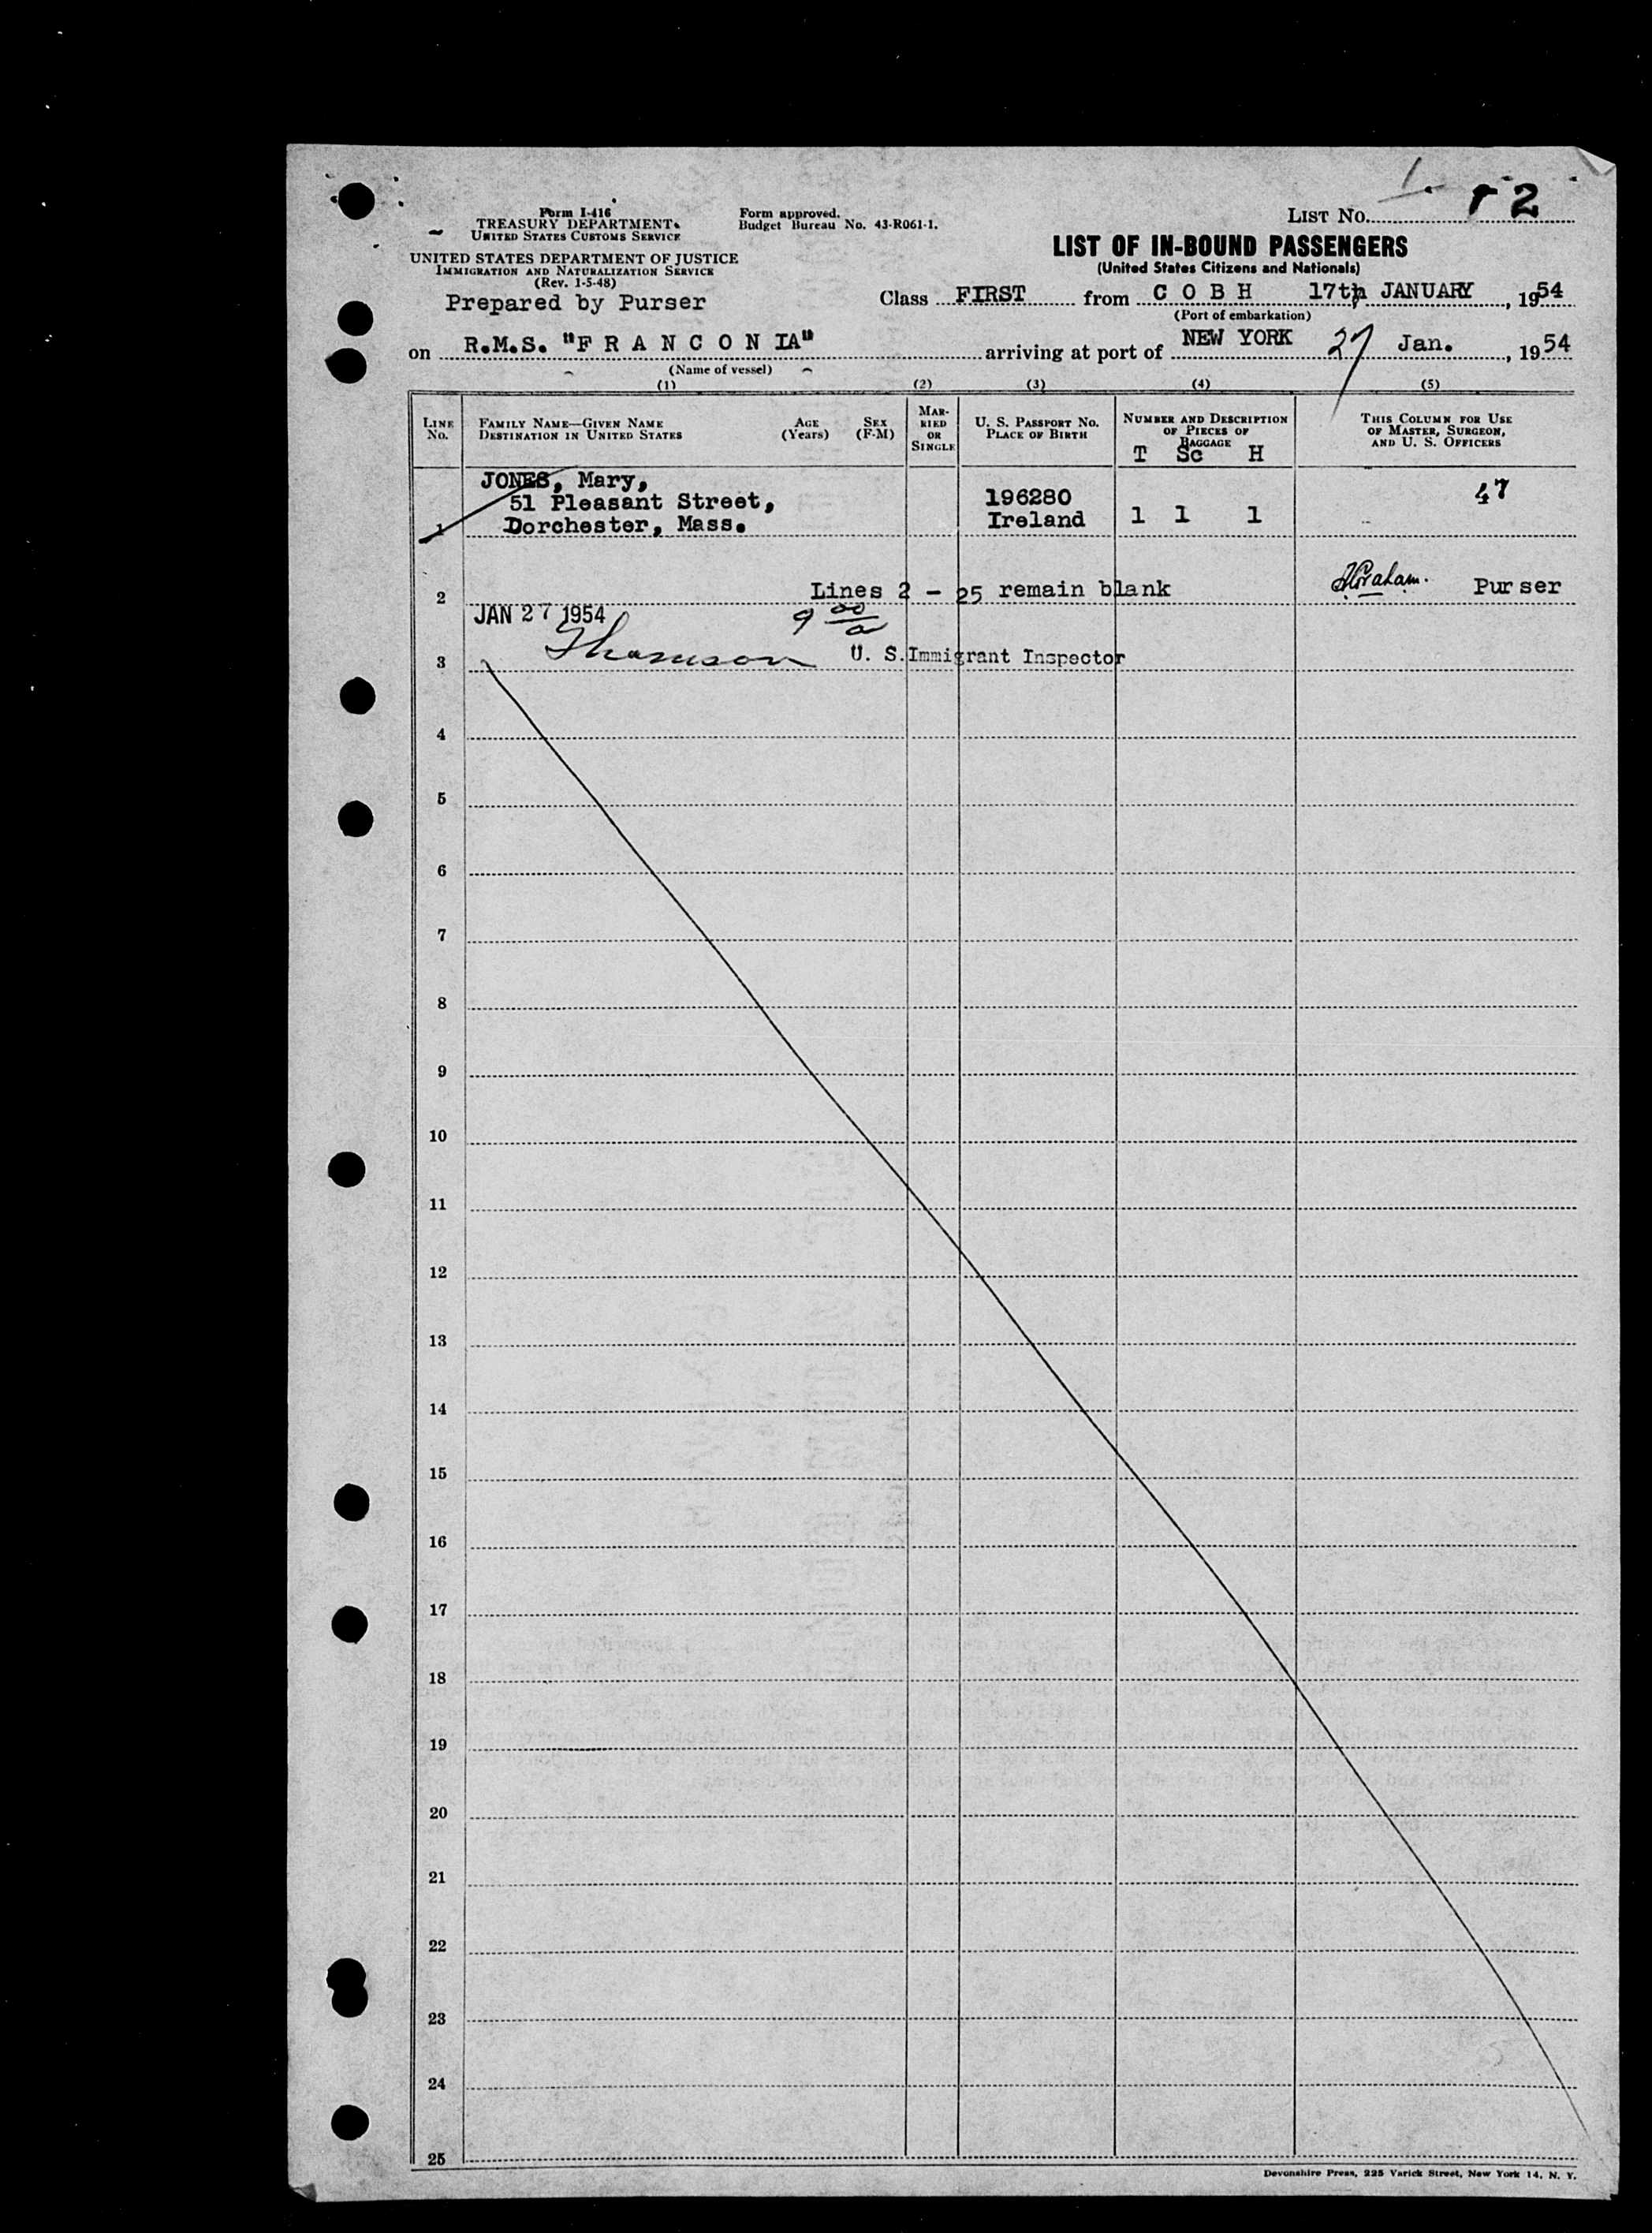 Form I-416
TREASURY DEPARTMENT
UNITED STATES CUSTOMS SERVICE
UNITED STATES DEPARTMENT OF JUSTICE
IMMIGRATION AND NATURALIZATION SERVICE
(Rev. 1-5-48)
Prepared by Purser
Form approved.
Budget Bureau No. 43-R061-1.
LIST No. 2
LIST OF IN-BOUND PASSENGERS
(United States Citizens and Nationals)
Class FIRST from C O B H 17th JANUARY, 1954
(Port of embarkation)
on R.M.S. "F R A N C O N IA" arriving at port of NEW YORK 27 Jan., 1954
(Name of vessel)
(1) (2) (3) (4) (5)
LINE No.
FAMILY NAME—GIVEN NAME
DESTINATION IN UNITED STATES
AGE (Years)
SEX (F-M)
MARRIED OR SINGLE
U. S. PASSPORT No.
PLACE OF BIRTH
NUMBER AND DESCRIPTION OF PIECES OF BAGGAGE
T Sc H
THIS COLUMN FOR USE OF MASTER, SURGEON, AND U. S. OFFICERS
JONES, Mary,
51 Pleasant Street,
Dorchester, Mass.
1
196280
Ireland
1 1 1
47
2 Lines 2 - 25 remain blank Purser
JAN 27 1954 9 00/a
3 U. S. Immigrant Inspector
4
5
6
7
8
9
10
11
12
13
14
15
16
17
18
19
20
21
22
23
24
25
Devonshire Press, 225 Varick Street, New York 14, N. Y.